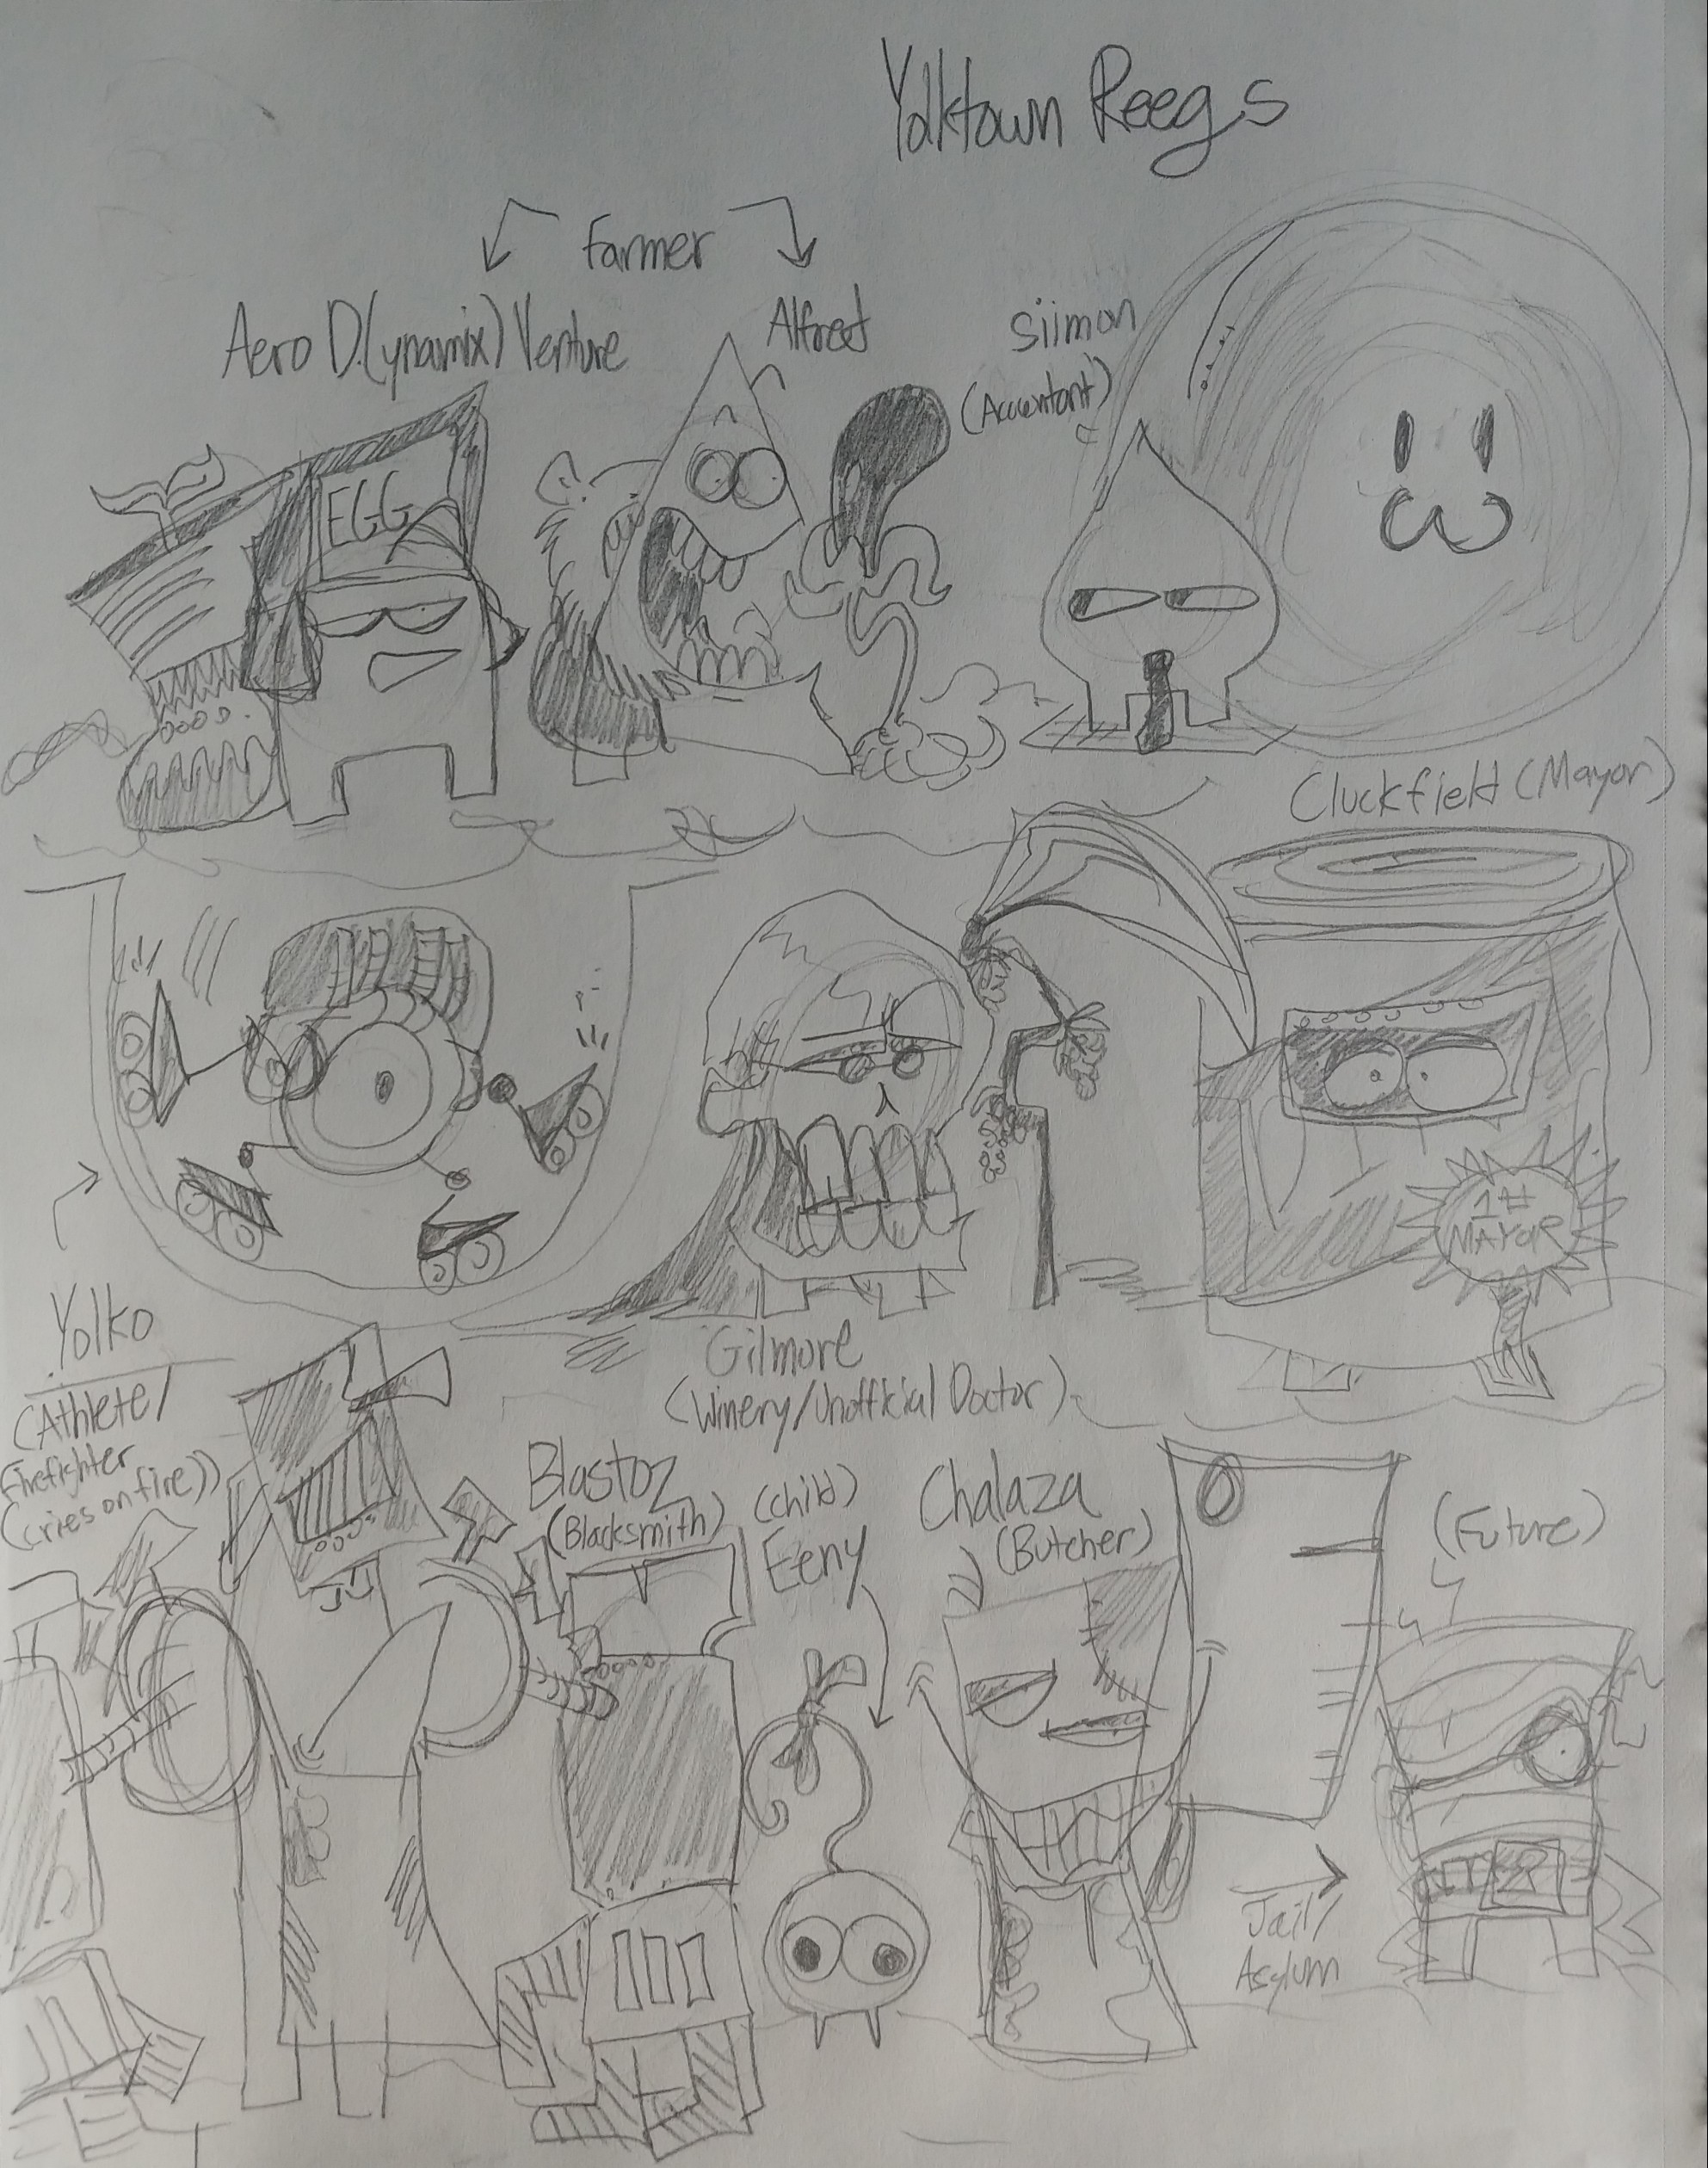 Yolktown Reegs
Farmer
Aero D.(ynamix) Venture
Alfred
Siimon
(Accontant)
EGG
Cluckfield (Mayor)
1#
MAYOR
Yolko
(Athlete/
Firefighter
(cries on fire))
Gilmore
(Winery/Unofficial Doctor)
Blastoz
(Blacksmith)
(child)
Eeny
Chalaza
(Butcher)
(Future)
Jail/
Asylum